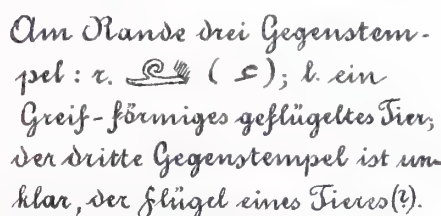 Am Rande drei Gegenstem-
pel: r. ( ); l. ein
Greif-förmiges geflügeltes Tier;
der dritte Gegenstempel ist un-
klar, der Flügel eines Tieres(?).